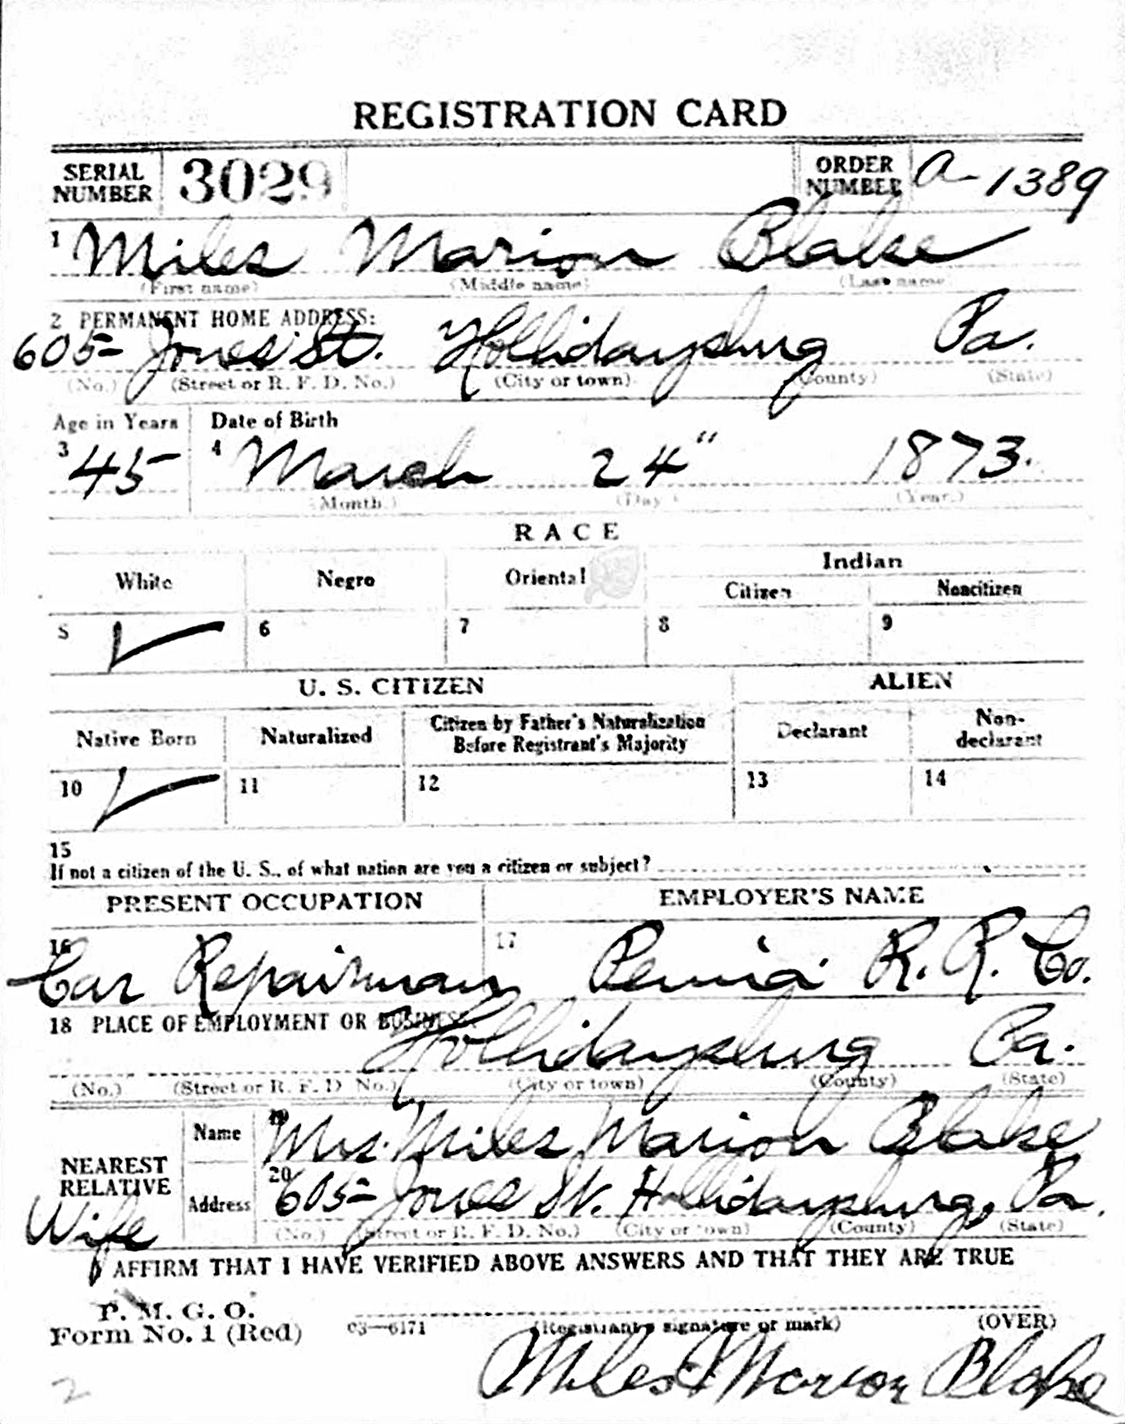 REGISTRATION CARD
SERIAL NUMBER 3029 ORDER NUMBER A-1389
1 Miles Marion Blake
(First name) (Middle name) (Last name)
2 PERMANENT HOME ADDRESS:
605 Jones St. Hollidaysburg Pa.
(No.) (Street or R. F. D. No.) (City or town) (County) (State)
Age in Years Date of Birth
3 45 4 March 24" 1873.
(Month.) (Day.) (Year.)
RACE
White Negro Oriental Indian
Citizen Noncitizen
5 6 7 8 9
U. S. CITIZEN ALIEN
Native Born Naturalized Citizen by Father's Naturalization Before Registrant's Majority Declarant Non-declarant
10 11 12 13 14
15
If not a citizen of the U. S., of what nation are you a citizen or subject?
PRESENT OCCUPATION EMPLOYER'S NAME
16 17
Car Repairman Penna. R. R. Co.
18 PLACE OF EMPLOYMENT OR BUSINESS:
Hollidaysburg Pa.
(No.) (Street or R. F. D. No.) (City or town) (County) (State)
NEAREST RELATIVE Name 19 Mrs. Miles Marion Blake
Wife Address 20 605 Jones St. Hollidaysburg, Pa.
(No.) (Street or R. F. D. No.) (City or town) (County) (State)
I AFFIRM THAT I HAVE VERIFIED ABOVE ANSWERS AND THAT THEY ARE TRUE
P. M. G. O.
Form No. 1 (Red) 03—6171 (Registrant's signature or mark) (OVER)
Miles Marion Blake
2